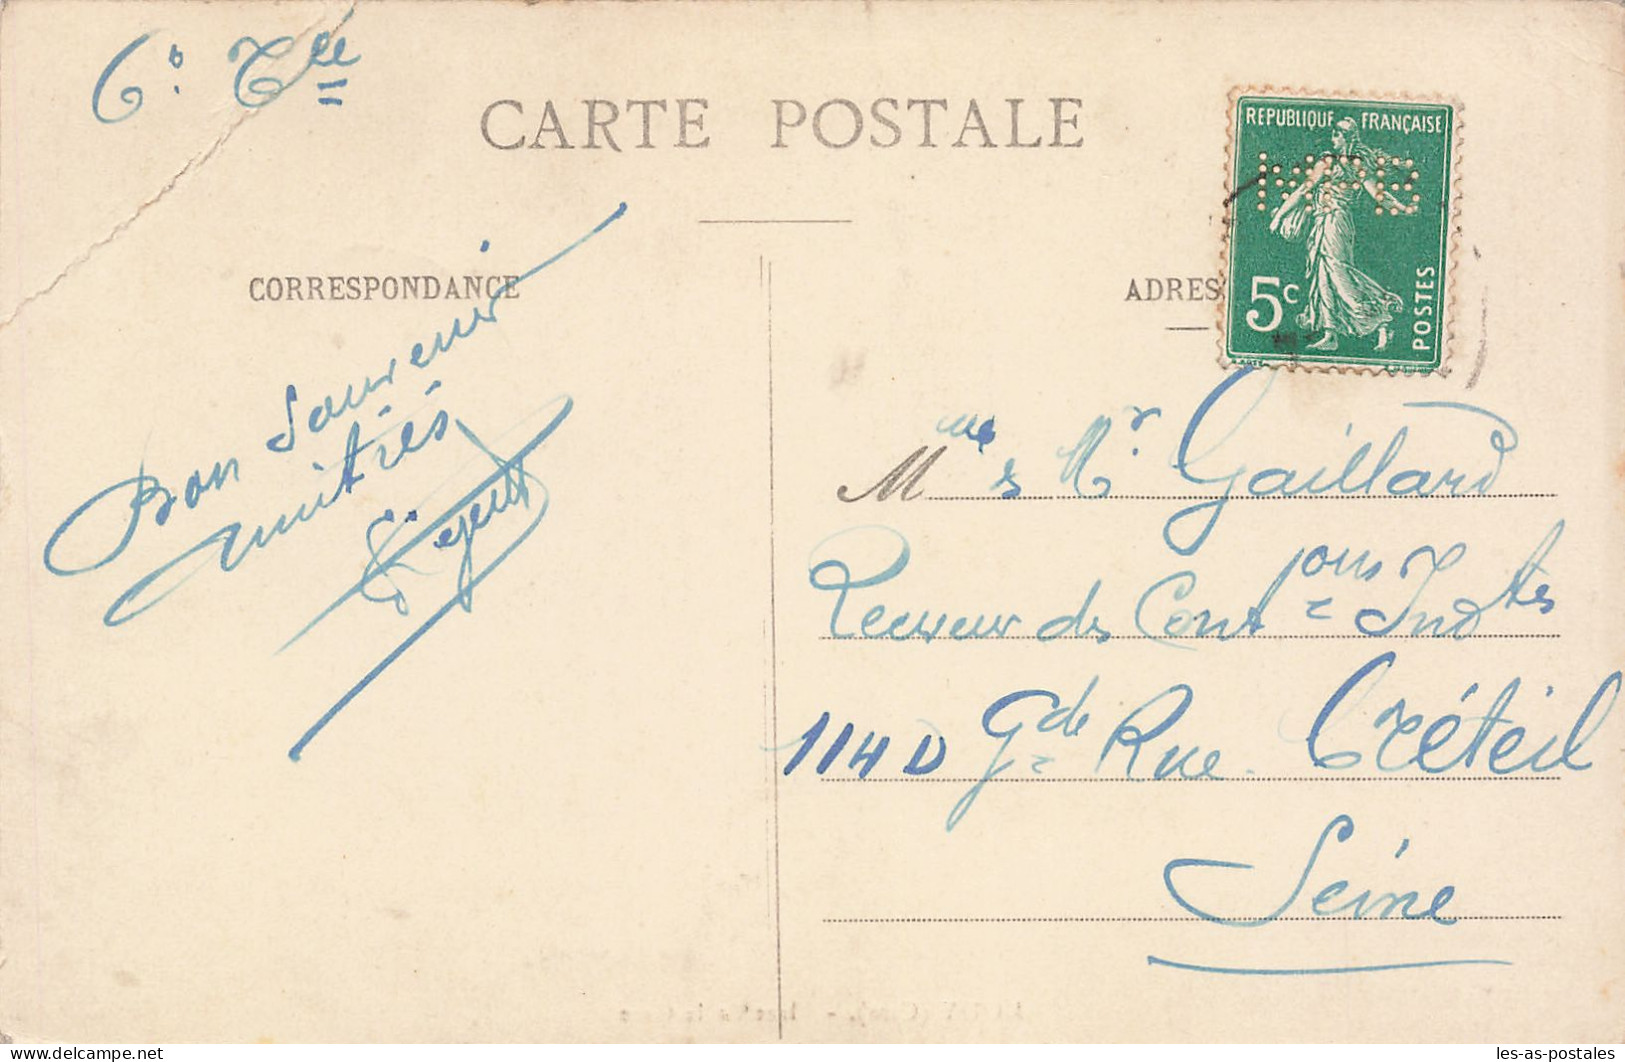 CARTE POSTALE
REPUBLIQUE FRANÇAISE
5c
POSTES
CORRESPONDANCE
Bon Souvenir
amitiés
ADRES
Mme & Mr Gaillard
Receveur des Contons Indtes
114 D Gde Rue Créteil
Seine
delcampe.net
les-as-postales